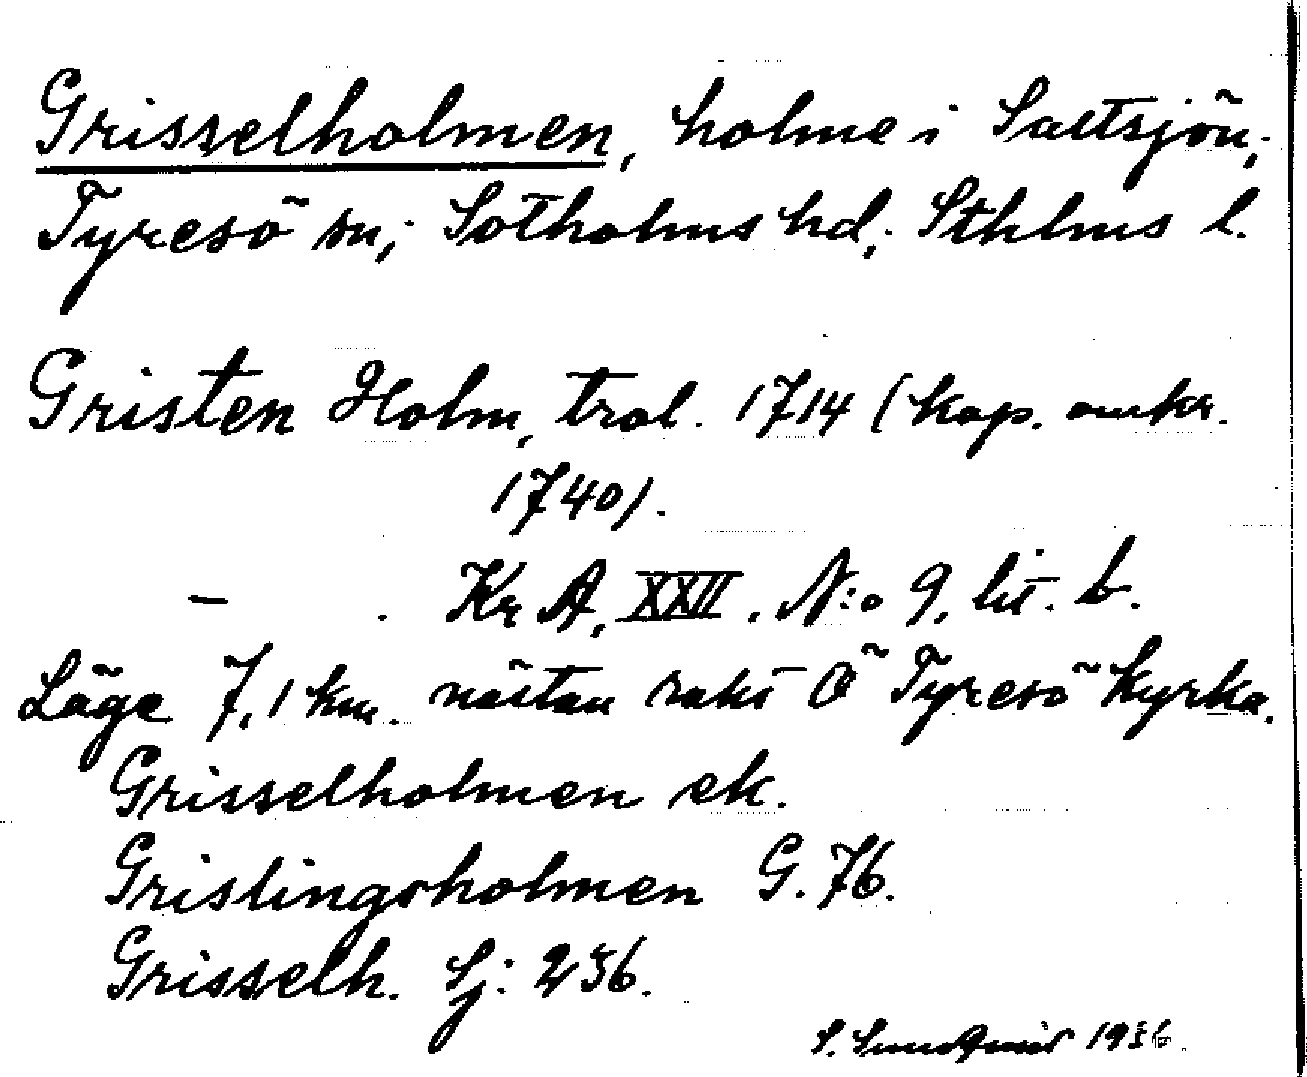 Grisselholmen, holme i Saltsjön,
Tyresö sn, Sotholms hd, Sthlms l.
Gristen Holm, trol. 1714 (kop. omkr.
1740).
– . Kr A, XXII. N:o 9, lit. b.
Läge 7,1 km. nästan rakt Ö Tyresö kyrka.
Grisselholmen ek.
Grislingsholmen G. 76.
Grisselh. Sj: 256.
S. Sundquist 1936.